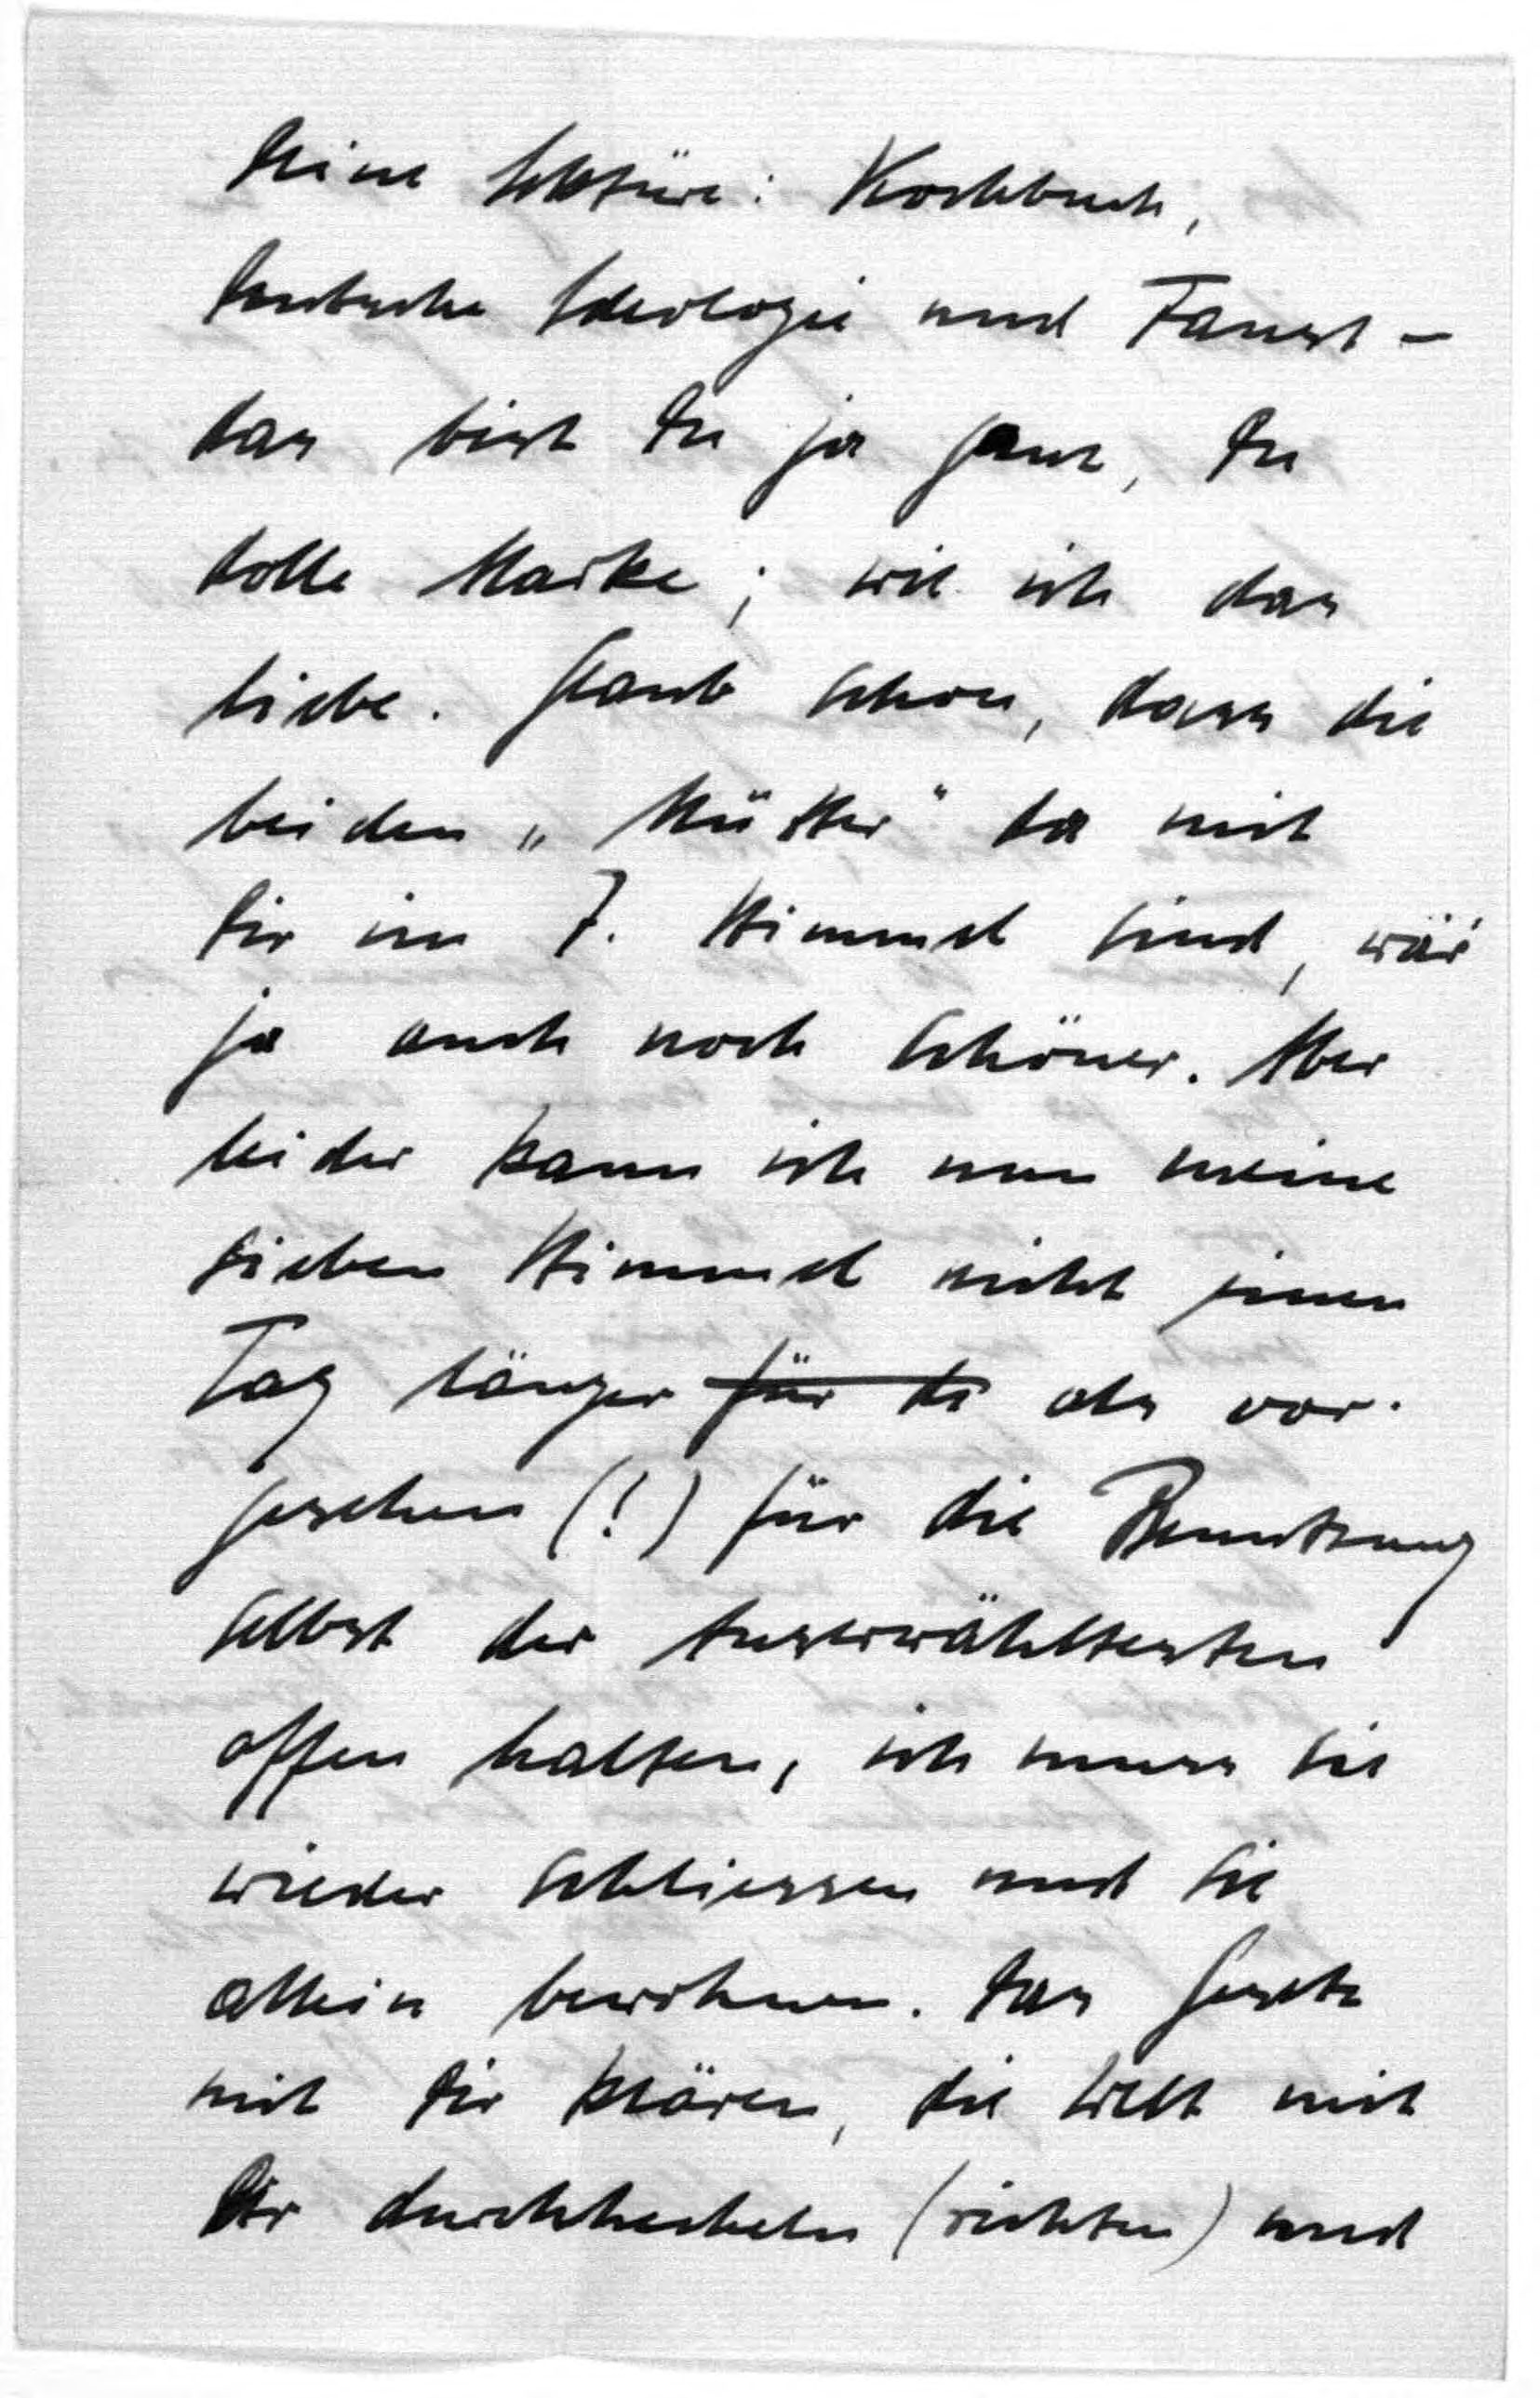 Deine Lektüre: Kochbuch,
Deutsche Ideologie und Faust –
das bist Du ja ganz, Du
dolle Marke; wie ich das
liebe. Glaub schon, dass die
beiden „Mütter" da mit
Dir im 7. Himmel sind, wär'
ja auch noch schöner. Aber
leider kann ich nun meine
sieben Himmel nicht einen
Tag länger für di als vor-
gesehen (!) für die Benutzung
selbst der Auserwähltesten
offen halten, ich muss sie
wieder schliessen und sie
allein bewohnen. Das Gesetz
mit Dir klären, die Welt mit
Dir durchhecheln (richten) und